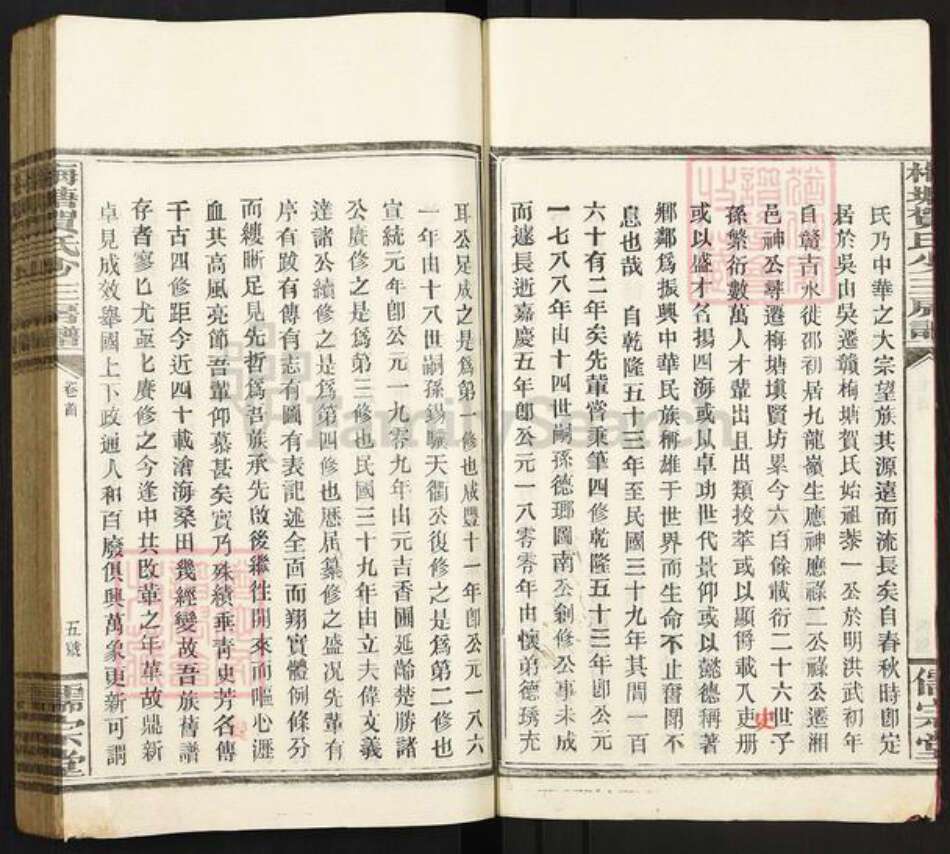 氏乃中華之大宗望族其源遠而流長矣自春秋時卽定
居於吳山吳遷贛梅塘賀氏始祖黎一公於明洪武初年
自贛吉水徙邵初居九龍嶺生應神應祿二公祿公遷湘
邑神公尋遷梅塘塤賢坊累今六百餘載衍二十六世子
孫繁衍數萬人才輩出且出類拔萃或以顯爵載入吏册
史
或以盛才名揚四海或以卓功世代景仰或以懿德稱著
鄉鄰爲振興中華民族稱雄于世界而生命不止奮鬭不
息也哉 自乾隆五十三年至民國三十九年其間一百
六十有二年矣先輩嘗秉筆四修乾隆五十三年卽公元
一七八八年由十四世嗣孫德瑯圖南公創修公事未成
而遽長逝嘉慶五年卽公元一八零零年由懷弟德琇充
耳公足成之是爲第一修也咸豐十一年卽公元一八六
一年由十八世嗣孫錫驥天衢公復修之是爲第二修也
宣統元年卽公元一九零九年由元吉香圃延齡楚勝諸
公賡修之是爲第三修也民國三十九年由立夫偉文義
達諸公續修之是爲第四修也歷屆纂修之盛况先輩有
序有跋有傳有志有圖有表記述全面而翔實體例條分
而縷晰足見先哲爲吾族承先啟後繼往開來而嘔心瀝
血其高風亮節吾輩仰慕甚矣實乃殊績垂青史芳名傳
千古四修距今近四十載滄海桑田幾經變故吾族舊譜
存者寥匕尤亟匕賡修之今逢中共改革之年革故鼎新
卓見成效舉國上下政通人和百廢俱興萬象更新可謂
梅塘賀氏少三房譜
卷首
五號